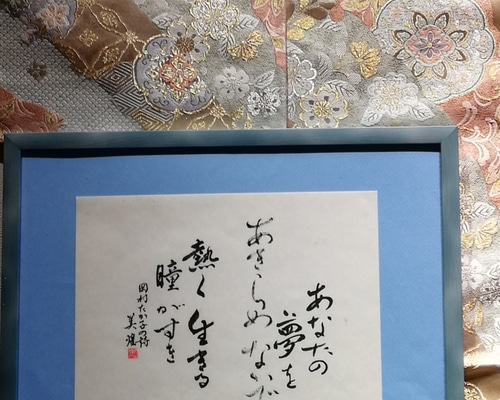 あなたの
夢を
あきらめないで
熱く生きる
瞳がすき
岡村たか子の詩
美